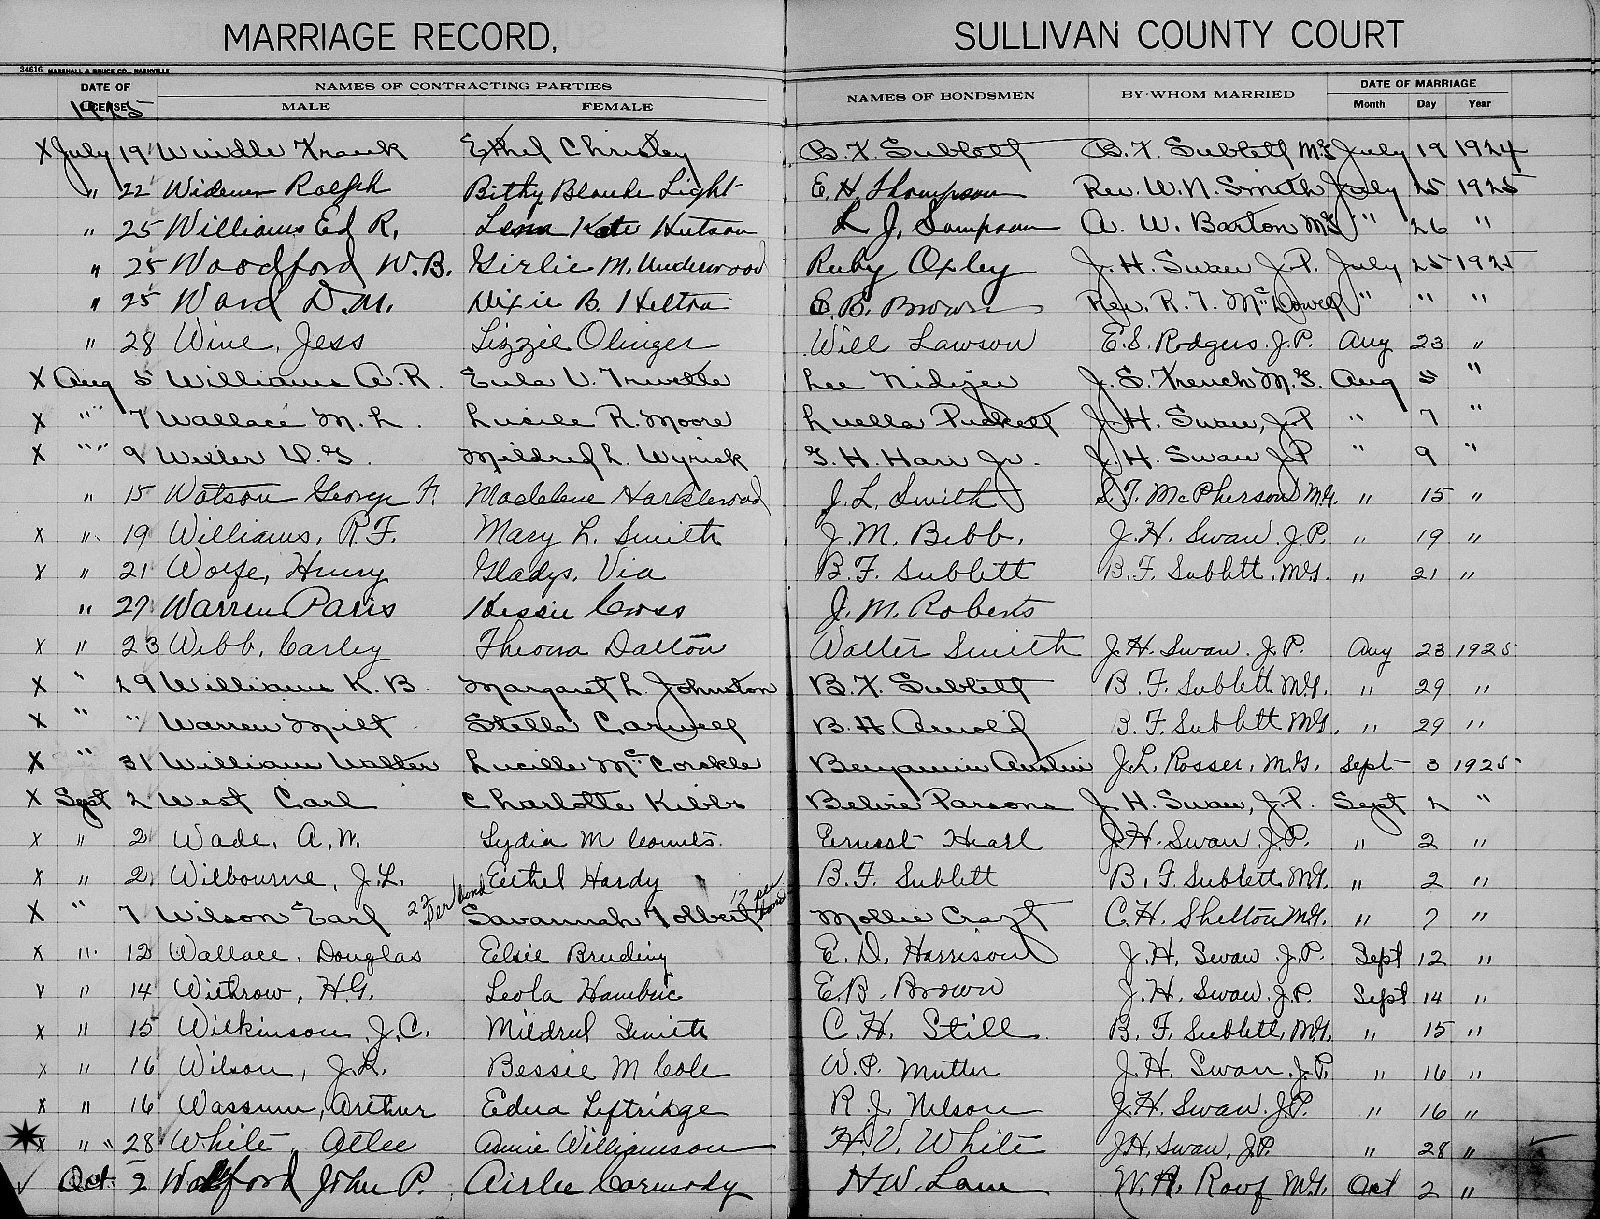 MARRIAGE RECORD, SULLIVAN COUNTY COURT
34616 MARSHALL & BRUCE CO., NASHVILLE
DATE OF LICENSE NAMES OF CONTRACTING PARTIES NAMES OF BONDSMEN BY WHOM MARRIED DATE OF MARRIAGE
1925 MALE FEMALE Month Day Year
X July 19 Windle Frank Ethel Christey B. F. Sublett B. F. Sublett M.G. July 19 1924
" 22 Widener Ralph Bithy Blanche Light E. H. Thompson Rev. W. N. Smith July 25 1925
" 25 Williams Ed R. Lena Kate Hutson L. J. Sampson A. W. Barton M.G. " 26 "
" 25 Woodford W. B. Girlie M. Underwood Ruby Oxley J. H. Swan J. P. July 25 1925
" 25 Ward D. M. Dixie B. Helton E. B. Brown Rev. R. T. McDowell " " "
" 28 Wine, Jess Lizzie Olinger Will Lawson E. S. Rodgers. J. P. Aug 23 "
X Aug 5 Williams A. R. Eula V. Lee J. S. French M. G. Aug 5 "
X " 7 Wallace M. L. Lucile R. Moore Luella Puckett J. H. Swan, J. P " 7 "
X " 9 Weiler D. G. Mildred L. Wyrick G. H. Harr Jr. J. H. Swan J. P " 9 "
" 15 Watson George F. Madelene Harklewood J. L. Smith S. T. McPherson M.G. " 15 "
X " 19 Williams, R. F. Mary L. Smith J. M. Bibb. J. H. Swan. J. P. " 19 "
X " 21 Wolfe, Henry Gladys, Via B. F. Sublett B. F. Sublett. M.G. " 21 "
" 27 Warren Paris Hessie Cross J. M. Roberts
X " 23 Webb, Carley Theona Dalton Walter Smith J. H. Swan. J. P. Aug 23 1925
X " 29 Williams K. B. Margaret L. Johnston B. F. Sublett B. F. Sublett M.G. " 29 "
X " " Warren Milt Stella Carwell B. H. Arnold B. F. Sublett M.G. " 29 "
X " 31 William Walter Lucille McCorkle Benjamin Austin J. L. Rosser, M.G. Sept 3 1925
X Sept 2 West Carl Charlotte Kibbs Parsons J. H. Swan, J. P. Sept 2 "
X " 2 Wade, A. W. Lydia M Counts. Ernest Hearl J. H. Swan. J. P. " 2 "
X " 2 Wilbourne, J. L. Eethel Hardy B. F. Sublett B. F. Sublett. M.G. " 2 "
X " 7 Wilson Earl 22 Per bond Savannah Tolbert 17 per bond Mollie C. H. Shelton M.G. " 7 "
X " 12 Wallace, Douglas Elsie E. D. Harrison J. H. Swan. J. P. Sept 12 "
V " 14 Withrow, H. G. Leola Hambric E. B. Brown J. H. Swan. J. P. Sept 14 "
X " 15 Wilkinson, J. C. Mildred Smith C. H. Still B. F. Sublett, M.G. " 15 "
X " 16 Wilson, J. L. Bessie M Cole W. P. Mutter J. H. Swan. J. P. " 16 "
X " 16 Wassum, Arthur Edna Leftridge R. J. Nelson J. H. Swan. J. P. " 16 "
X " 28 White, Atlee Annie Williamson H. V. White J. H. Swan, J. P. " 28 "
✓ Oct. 2 Walford John P. Airlee Carmody H. W. Lane W. A. Roof M.G. Oct 2 "